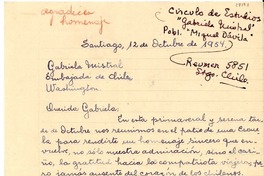 agradecer
homenaje
Círculo de Estudios
"Gabriela Mistral"
Pobl. "Miguel Dávila"
Santiago, 12 de Octubre de 1954.
Reumen 5851
Stgo. Chile.
Gabriela Mistral
Embajada de Chile
Washington.
Querida Gabriela:
En esta primaveral y serena tar-
de de Octubre nos reunimos en el patio de una Escue
la para rendirte un homenaje sincero que en-
vuelve, no sólo nuestra admiración, sino el cari-
ño, la gratitud hacia la compatriota viajera, pe
ro jamás ausente del corazón de los chilenos.